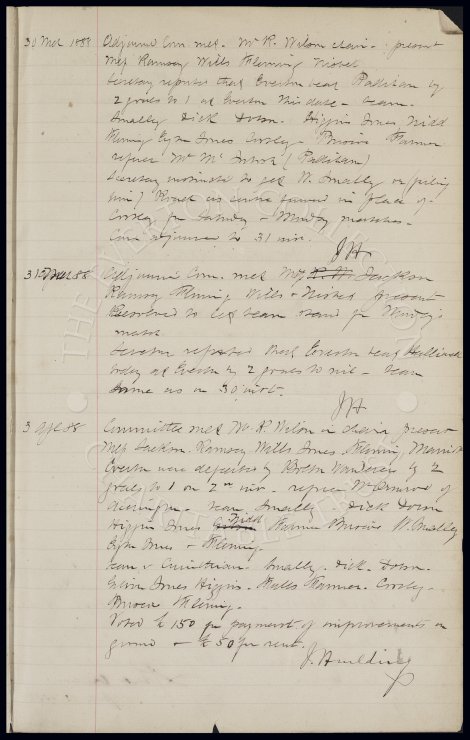 30 Mch 1888 Adjourned Com. met. Mr R. Wilson chair. present
Messrs Ramsay Wills Fleming Nisbet
Secretary reported that Everton beat Padiham by
2 goals to 1 at Everton this date - team -
Smalley Dick Dobson. Higgins Jones Kidd
Fleming Jones Costley - Briscoe Farmer
referee Mr Mc (Padiham)
Secretary to get W. Smalley or (failing
him) as centre forward in place of
Costley for Saturday & Monday matches -
Com adjourned to 31 inst.
J H.
31 Mch 88 Adjourned Com. met Messrs Jackson
Ramsay Fleming Wills & Nisbet present
Resolved to let team stand for Monday's
match.
Secretary reported that Everton beat Halliwell
today at Everton by 2 goals to nil - team
same as on 30 inst.
J H
3 Apl 88 Committee met Mr R Wilson in chair, present
Messrs Jackson. Ramsay. Wills Jones Fleming
Everton were defeated by Bolton Wanderers by 2
goals to 1 on 2nd inst. - referee Mr Ormrod of
Accrington - team. Smalley Dick Dobson
Higgins Jones Kidd Farmer Briscoe W. Smalley
& Fleming.
Team v Corinthians. Smalley. Dick. Dobson.
Jones Higgins. Farmer. Costley.
Briscoe Fleming.
Voted £150 for payment of improvements on
ground & £50 for rent.
J. Houlding